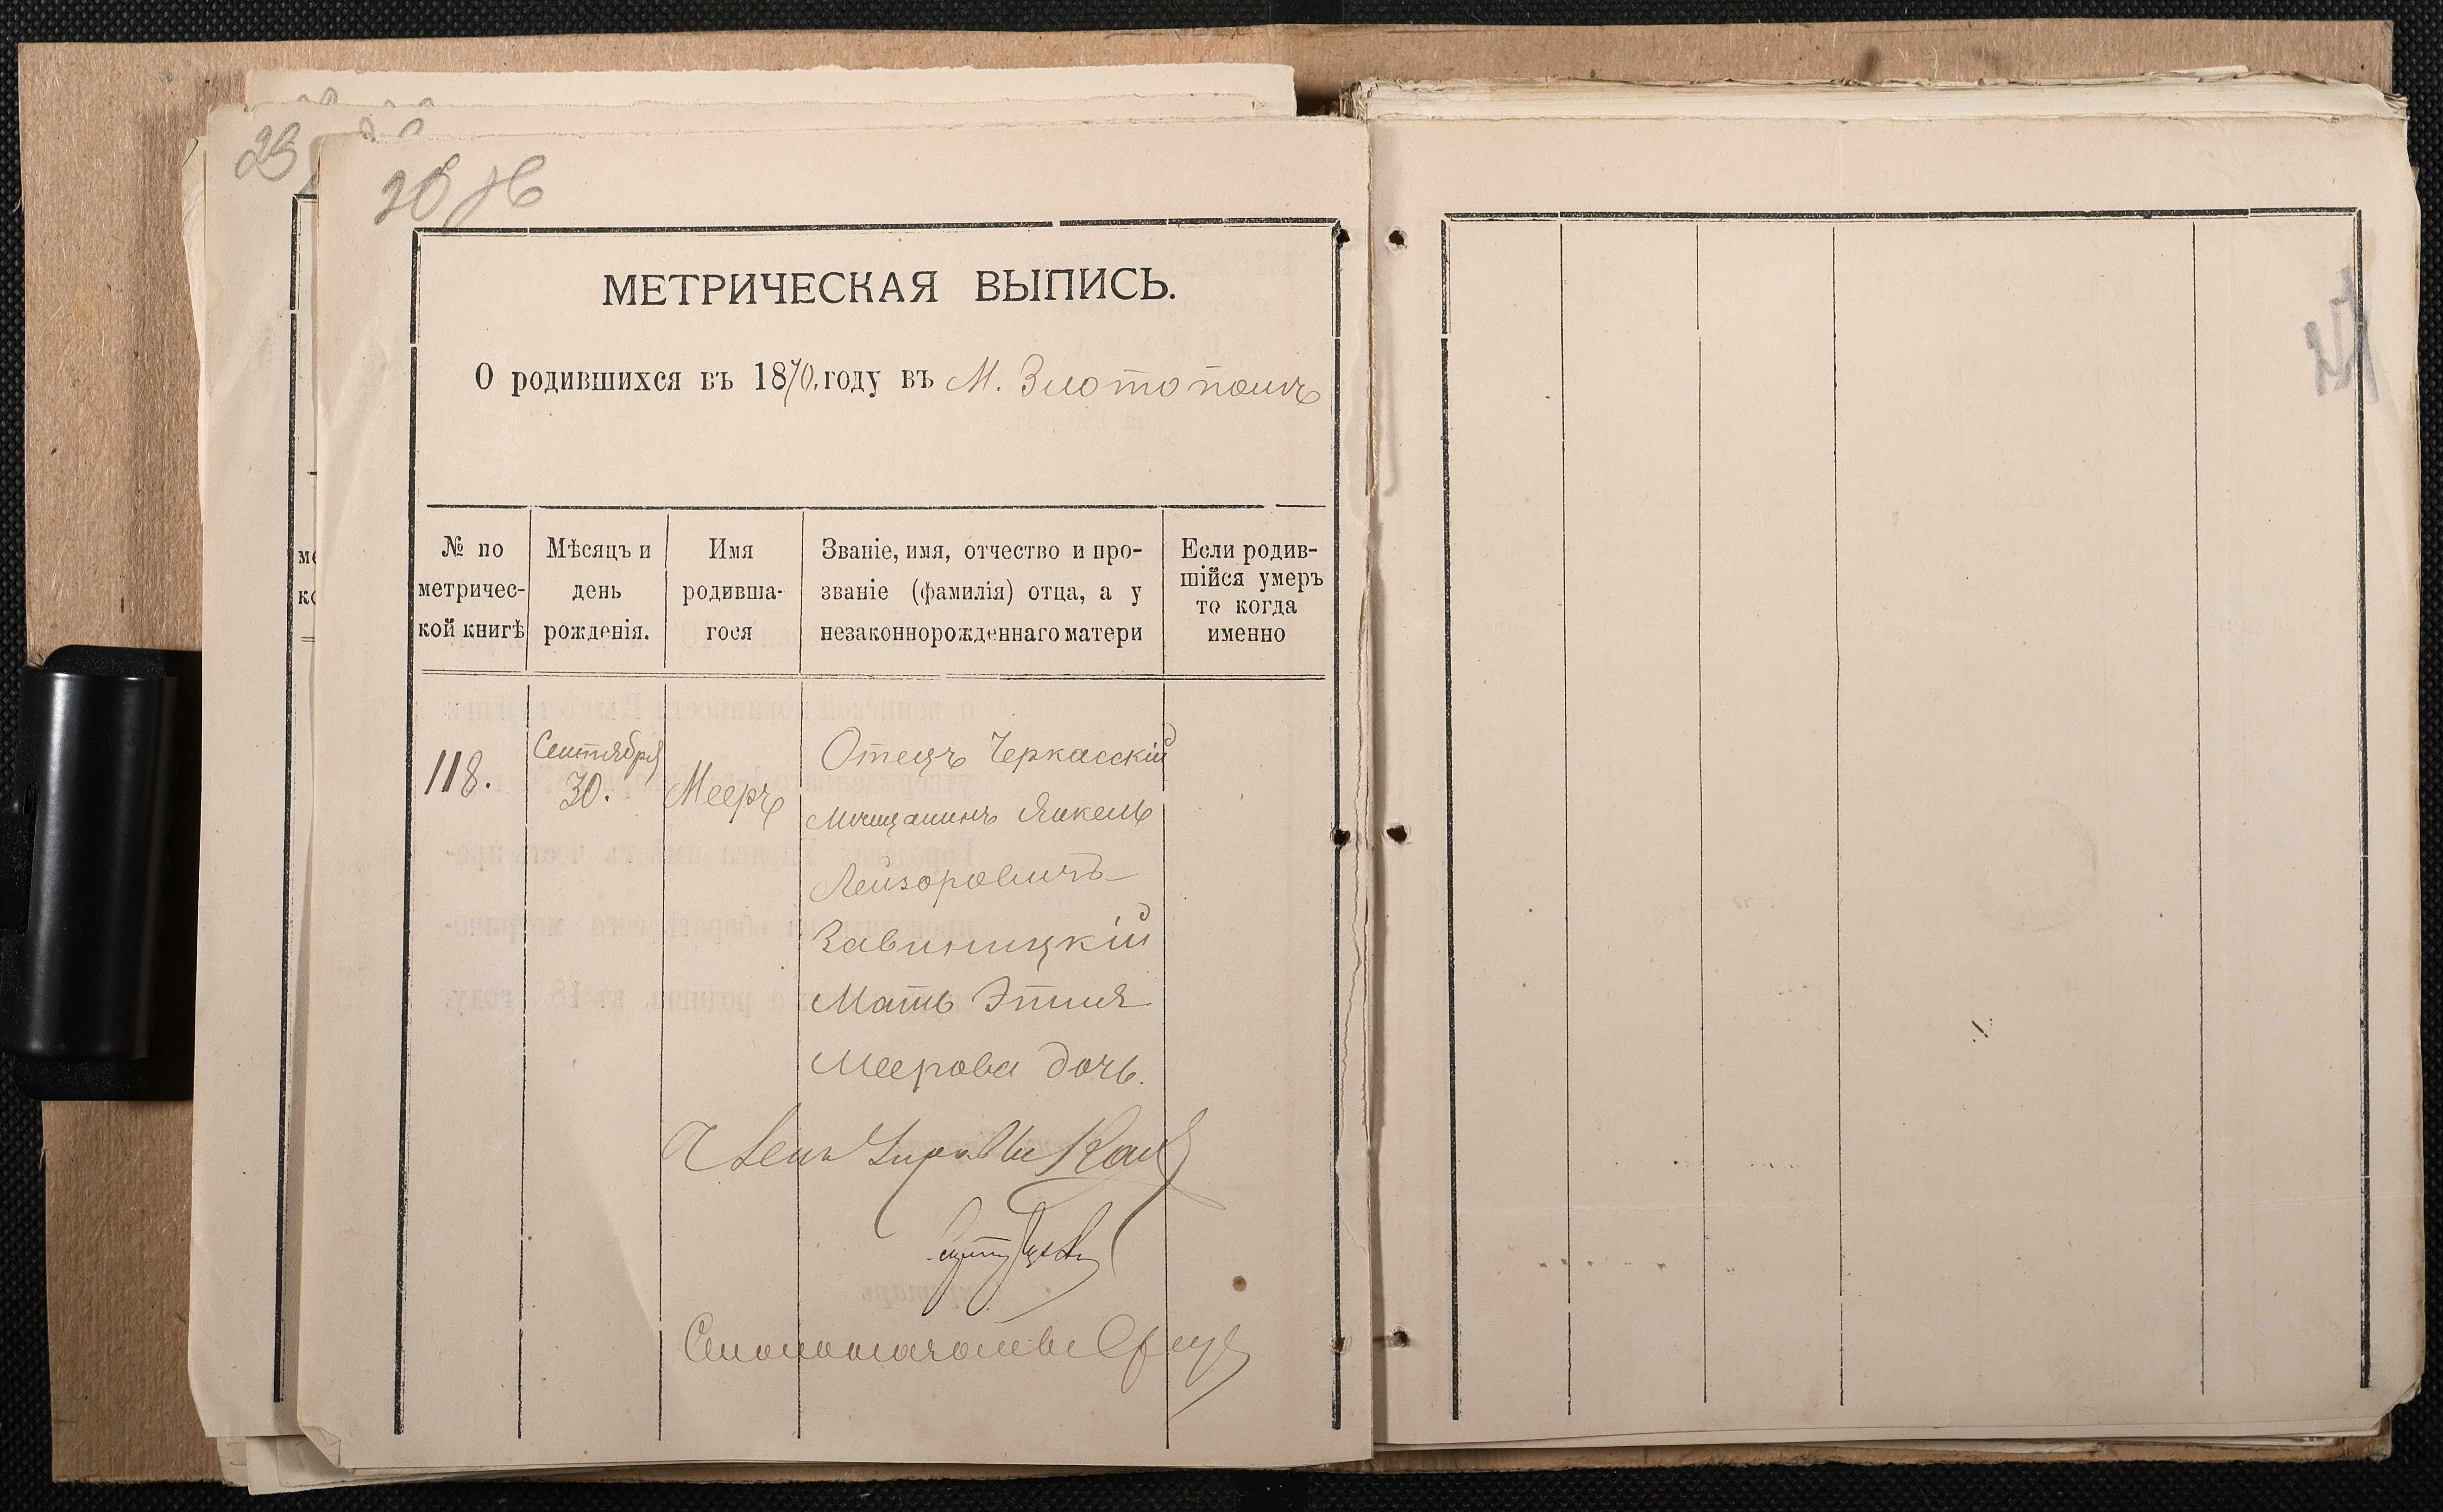 МЕТРИЧЕСКАЯ ВЫПИСЬ.
О родившихся въ 1870. году въ М. Златополѣ
№ по метричес-кой книгѣ
Мѣсяцъ и день рожденія.
Имя родивша-гося
Званіе, имя, отчество и про-званіе (фамилія) отца, а у незаконнорожденнаго матери
Если родив-шійся умеръ то когда именно
118.
Сентября
30.
Мееръ
Отецъ Черкасскій
Мѣщанинъ Янкель
Лейзоровичъ
Завиницкій
Мать Этля
Меерова дочь.
Членъ Управы